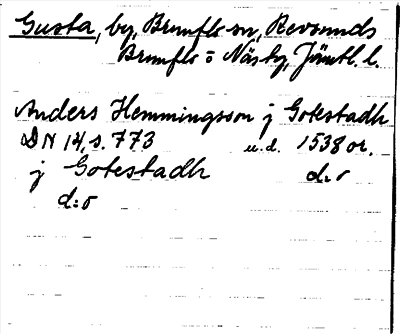 Gusta, by, Brunflo sn, Revsunds
Brunflo o Näs tg, Jämtl. l.
Anders Hemmingsson j Gotestadh
DN 14, s. 773 u.d. 1538 or.
j Gotestadh d:o
d:o